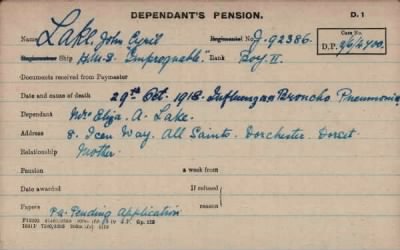 DEPENDANT'S PENSION. D. 1
Name Lake, John Cyril Regimental No. J.92386. Case No.
Regiment or Ship H.M.S. "Impregnable". Rank Boy II. D.P.
Documents received from Paymaster
Date and cause of death 29th Oct. 1918. Influenza Broncho Pneumonia
Dependant Mrs Eliza. A. Lake.
Address 8. Icen Way. All Saints. Dorchester. Dorset
Relationship Mother.
Pension a week from
Date awarded If refused
Papers reason
Pa. Pending Application